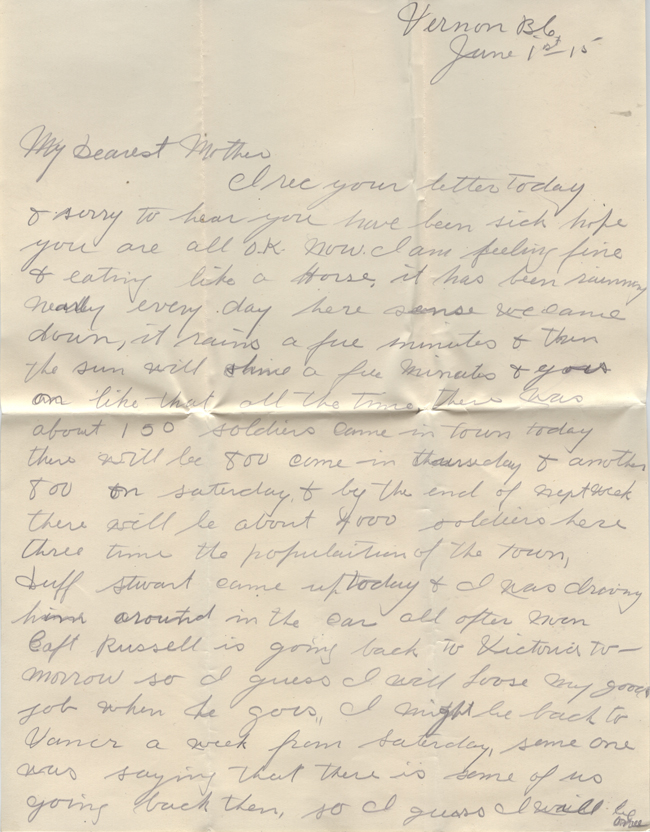 Vernon BC
June 1st 15
My Dearest Mother
I rec your letter today
& sorry to hear you have been sick hope
you are all O.K. now. I am feeling fine
& eating like a Horse, it has been rainning
nearly every day here sense we came
down, it rains a fue minutes & then
the sun will shine a fue minutes & goes
on like that all the time, there was
about 150 soldiers came in town today
there will be 800 come in thursday & another
800 on saturday, & by the end of next week
there will be about 4000 soldiers here
three time the population of the town,
Duff Stuart came up today & I was driving
him around in the car all after noon
Capt Russell is going back to Victoria to-
morrow so I guess I will loose my good
job when he goes, I might be back to
Vancr a week from saturday, some one
was saying that there is some of us
going back then, so I guess I will be